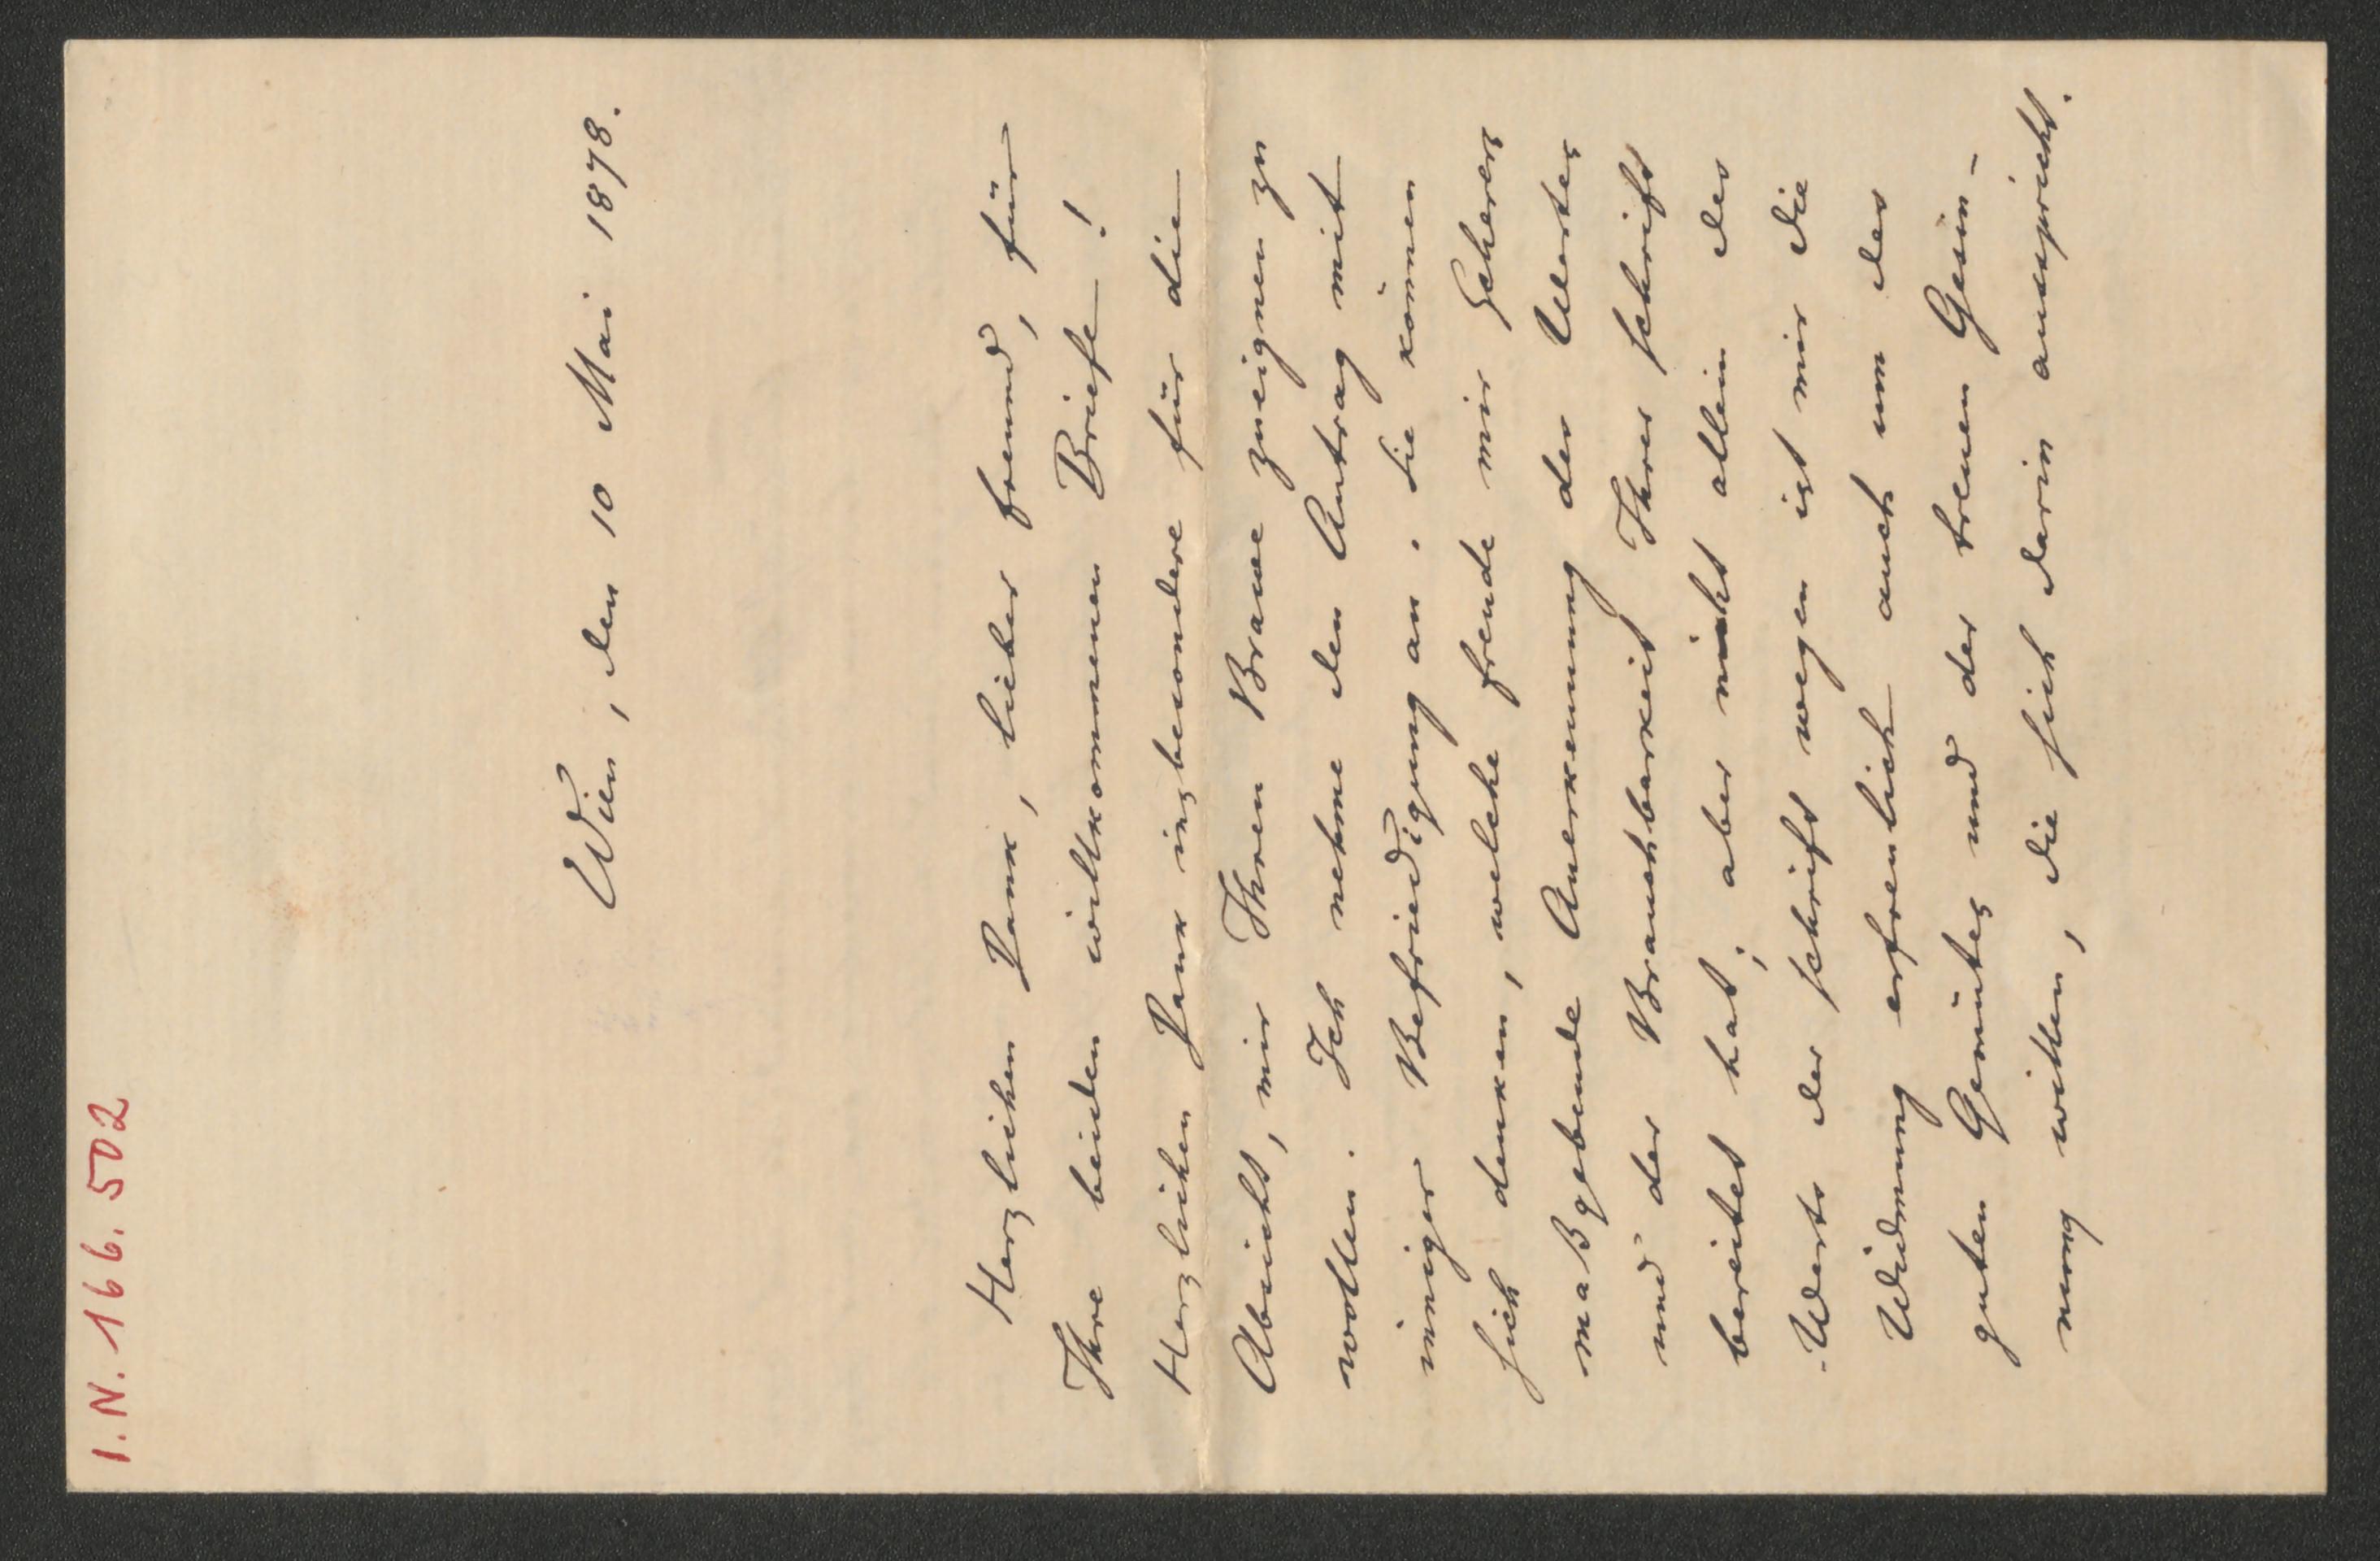 I.N. 166.502
Wien, den 10 Mai 1878.
Herzlichen Dank, lieber freund, für
Ihre beiden willkommenen Briefe!
Herzlichen Dank insbesondere für die
Absicht, mir Ihren Brawe zueignen zu
wollen. Ich nehme den Antrag mit
inniger Befriedigung an. Sie können
sich denken, welche freude mir Scherers
maßgebende Anerkennung des Wertes
und der Brauchbarkeit Ihrer schrift
bereitet hat; aber nicht allein des
Werts der schrift wegen ist mir die
Widmung erfreulich auch um des
guten Gemütes und der treuen Gesin-
nung willen, die sich darin ausspricht.